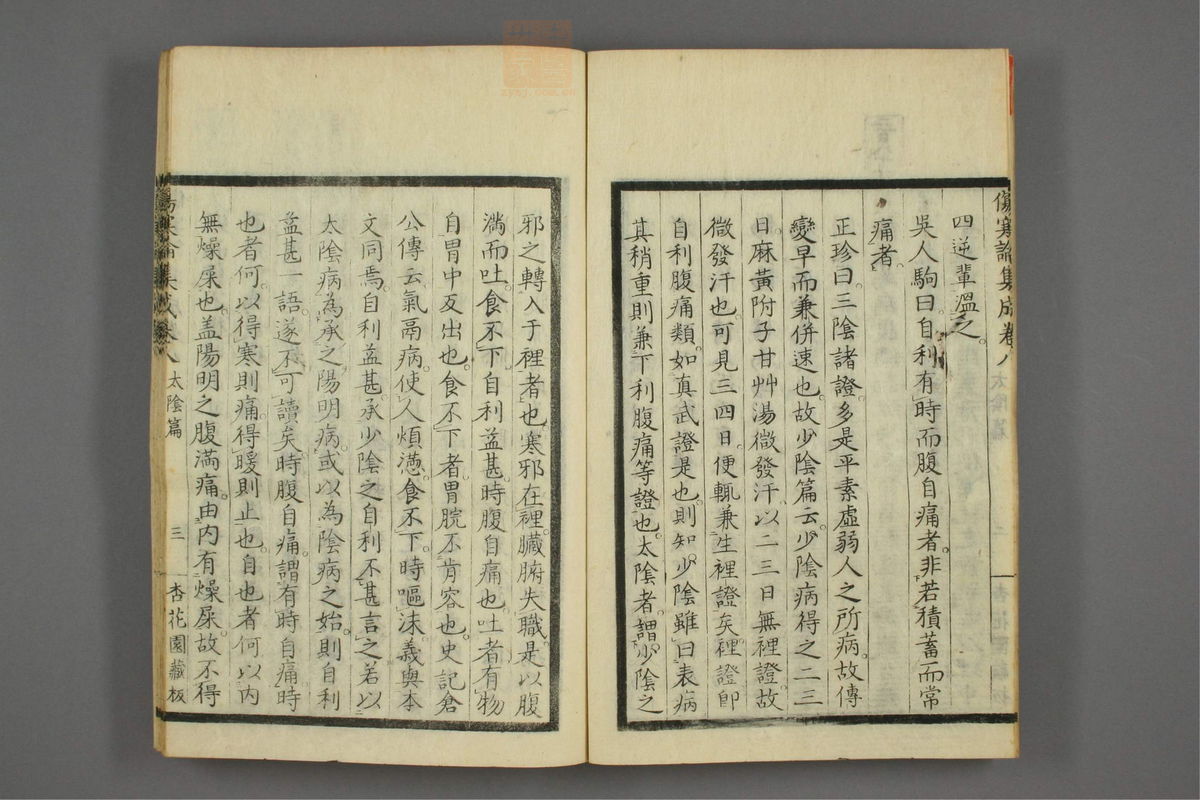 傷寒論集成卷八
四逆輩溫之。
吳人駒曰。自利有時而腹自痛者。非若積蓄而常
痛者。
正珍曰。三陰諸證。多是平素虛弱人之所病。故傳
變早而兼併速也。故少陰篇云。少陰病得之二三
日。麻黃附子甘艸湯微發汗。以二三日無裡證。故
微發汗也。可見三四日便輒兼生裡證矣。裡證即
自利腹痛類。如眞武證是也。則知少陰雖曰表病
其稍重則兼下利腹痛等證也。太陰者。謂少陰之
邪之轉入于裡者也。寒邪在裡。臟腑失職。是以腹
滿而吐。食不下。自利益甚。時腹自痛也。吐者有物
自胃中反出也。食不下者。胃脘不肯容也。史記倉
公傳云。氣鬲病。使人煩懣。食不下。時嘔沫。義與本
文同焉。自利益甚。承少陰之自利不甚言之。若以
太陰病為承之陽明病。或以為陰病之始。則自利
益甚一語。遂不可讀矣。時腹自痛。謂有時自痛。時
也者何。以得寒則痛。得暖則止也。自也者何。以內
無燥屎也。盖陽明之腹滿痛。由內有燥屎。故不得
傷寒論集成卷八 太陰篇 三 杏花園藏板